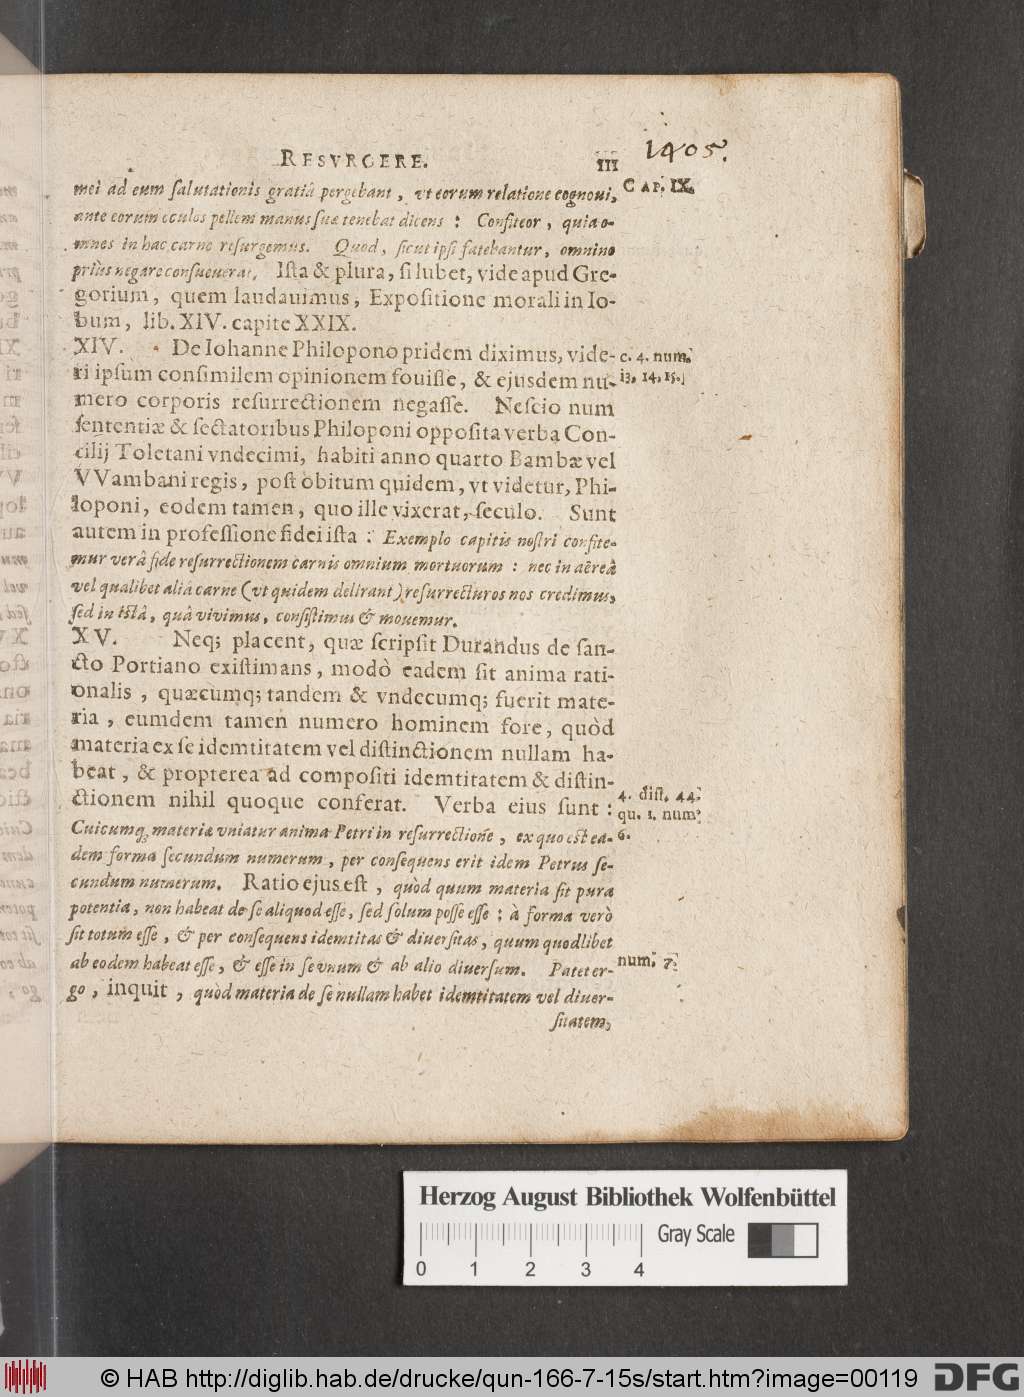 1405.
RESVRGERE. 111
CAP. IX.
mei ad eum ſalutationis gratiâ pergebant, vt eorum relatione cognoui,
ante eorum oculos pellem manus ſuæ tenebat dicens: Confiteor, quia o-
mnes in hac carne reſurgemus. Quod, ſicut ipſi fatebantur, omnino
priùs negare conſueuerat. Iſta & plura, ſi lubet, vide apud Gre-
gorium, quem laudauimus, Expoſitione morali in Io-
bum, lib. XIV. capite XXIX.
XIV. De Iohanne Philopono pridem diximus, vide-
c. 4. num.
ri ipſum conſimilem opinionem fouiſſe, & ejusdem nu-
13, 14, 15.
mero corporis reſurrectionem negaſſe. Neſcio num
ſententiæ & ſectatoribus Philoponi oppoſita verba Con-
cilij Toletani vndecimi, habiti anno quarto Bambæ vel
VVambani regis, poſt obitum quidem, vt videtur, Phi-
loponi, eodem tamen, quo ille vixerat, ſeculo. Sunt
autem in profeſſione fidei iſta: Exemplo capitis noſtri confite-
mur verâ fide reſurrectionem carnis omnium mortuorum: nec in aëreâ
vel qualibet aliâ carne (vt quidem delirant) reſurrecturos nos credimus,
ſed in iſtâ, quâ vivimus, conſiſtimus & mouemur.
XV. Neq; placent, quæ ſcripſit Durandus de ſan-
cto Portiano exiſtimans, modò eadem ſit anima rati-
onalis, quæcumq; tandem & vndecumq; fuerit mate-
ria, eumdem tamen numero hominem fore, quòd
materia ex ſe idemtitatem vel diſtinctionem nullam ha-
beat, & propterea ad compoſiti idemtitatem & diſtin-
ctionem nihil quoque conferat. Verba eius ſunt:
4. diſt. 44.
qu. 1. num.
6.
Cuicumq; materiæ vniatur anima Petri in reſurrectione, ex quo eſt ea-
dem forma ſecundum numerum, per conſequens erit idem Petrus ſe-
cundum numerum. Ratio ejus eſt, quòd quum materia ſit pura
potentia, non habeat de ſe aliquod eſſe, ſed ſolum poſſe eſſe; à forma verò
ſit totum eſſe, & per conſequens idemtitas & diuerſitas, quum quodlibet
ab eodem habeat eſſe, & eſſe in ſe vnum & ab alio diuerſum. Patet er-
num. 7.
go, inquit, quòd materia de ſe nullam habet idemtitatem vel diuer-
ſitatem,
Herzog August Bibliothek Wolfenbüttel
Gray Scale
0 1 2 3 4
© HAB http://diglib.hab.de/drucke/qun-166-7-15s/start.htm?image=00119
DFG